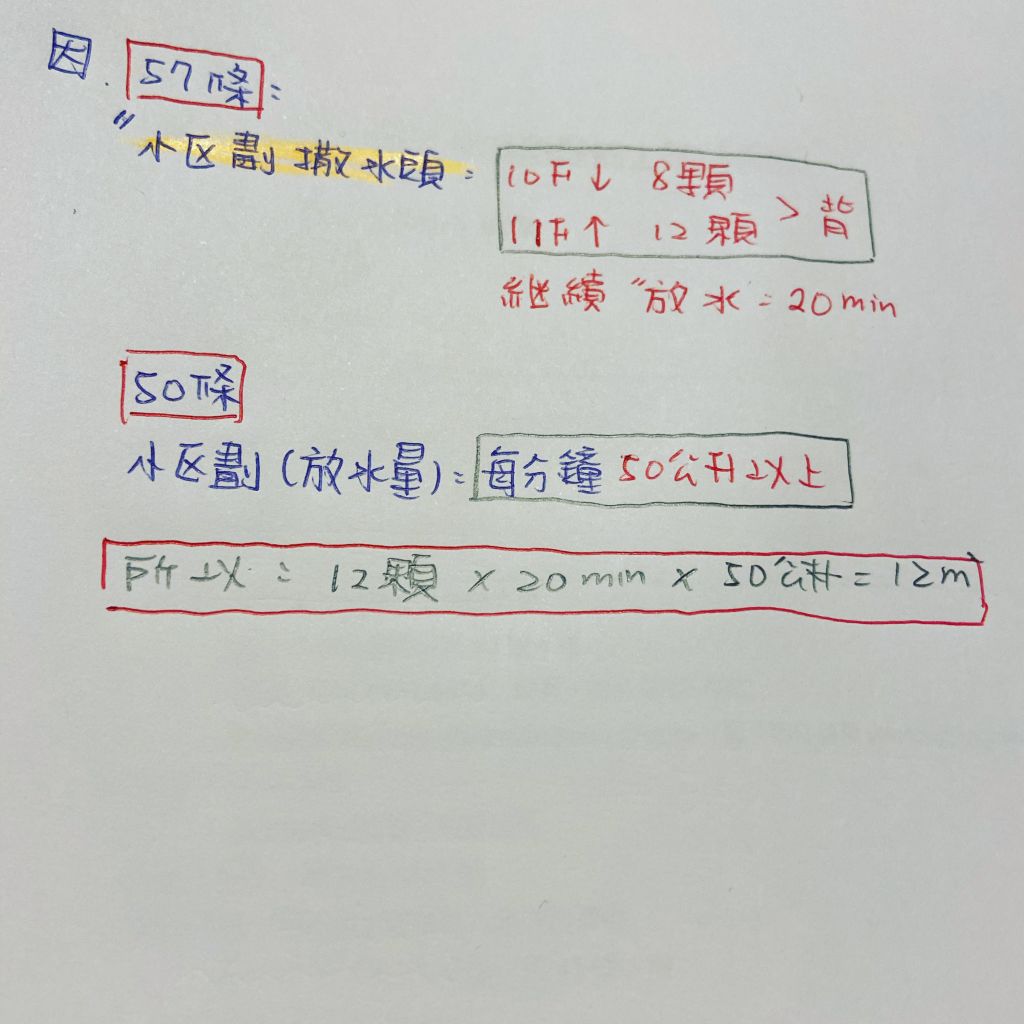 因. 57條:
"小区劃撒水頭:
10F↓ 8顆
11F↑ 12顆 > 背
継續"放水:20min
50條
小区劃(放水量):每分鐘50公升以上
所以: 12顆 × 20min × 50公升=12m